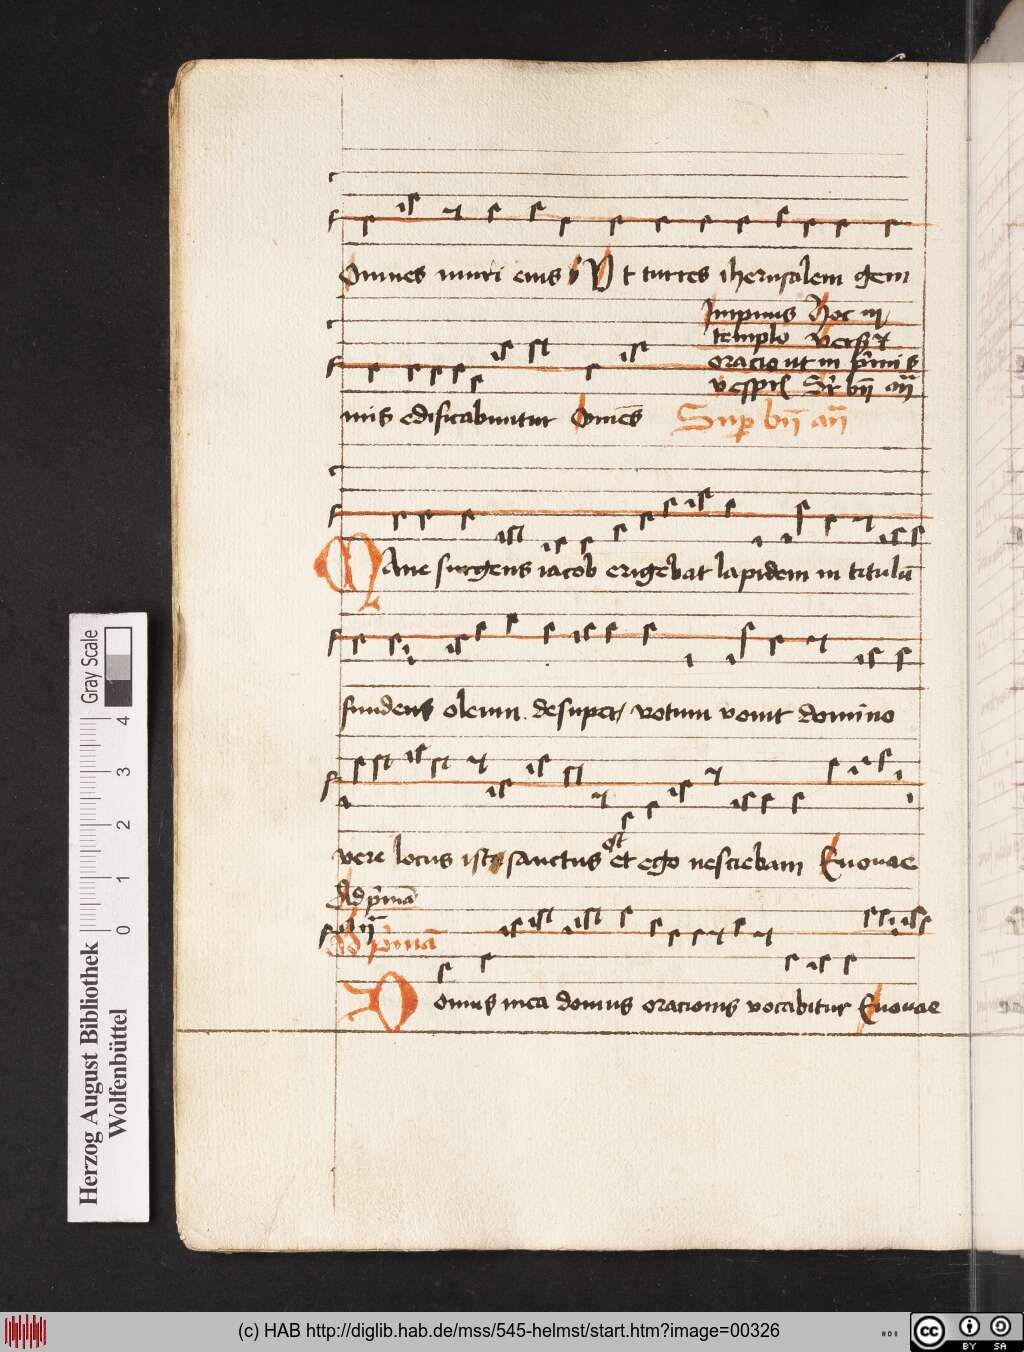 Omnes muri eius V Et turres iherusalem gem
Jmpnus Hoc in
templo vers R
oracio ut in pimis
vesperis Sup bn an
mis edificabuntur Omēs Sup bn̄ an̄
MAne surgens iacob erigebat lapidem in titulū
fundens oleum desuper votum vouit domino
vere locus iste sanctus est et ego nesciebam Euouae
Ad pīmā
Domus mea domus oracionis vocabitur Euouae
Gray Scale
0 1 2 3 4
Herzog August Bibliothek
Wolfenbüttel
(c) HAB http://diglib.hab.de/mss/545-helmst/start.htm?image=00326
cc BY SA